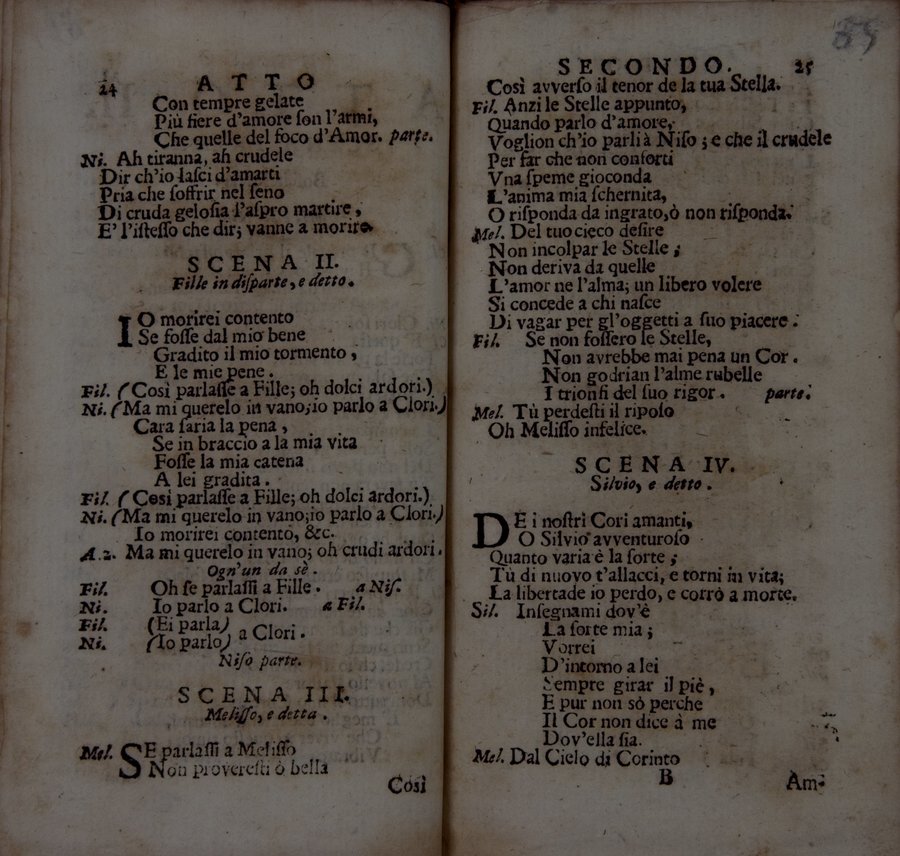 24 ATTO
Con tempre gelate
Più fiere d'amore ſon l'armi,
Che quelle del foco d'Amor. parte.
Ni. Ah tiranna, ah crudele
Dir ch'io laſci d'amarti
Pria che ſoffrir nel ſeno
Di cruda geloſia l'aſpro martire,
E' l'iſteſſo che dir; vanne a morire.
SCENA II.
Fille in diſparte, e detto.
IO morirei contento
Se foſſe dal mio bene
Gradito il mio tormento,
E le mie pene.
Fil. (Così parlaſſe a Fille; oh dolci ardori.)
Ni. (Ma mi querelo in vano; io parlo a Clori.)
Cara ſaria la pena,
Se in braccio a la mia vita
Foſſe la mia catena
A lei gradita.
Fil. (Cosi parlaſſe a Fille; oh dolci ardori.)
Ni. (Ma mi querelo in vano; io parlo a Clori.)
Io morirei contento, &c.
A 2. Ma mi querelo in vano; oh crudi ardori.
Ogn'un da sè.
Fil. Oh ſe parlaſſi a Fille. a Niſ.
Ni. Io parlo a Clori. a Fil.
Fil. (Ei parla)
a Clori.
Ni. (Io parlo)
Niſo parte.
SCENA III.
Meliſſo, e detta.
Mel. SE parlaſſi a Meliſſo
Non provereſti ò bella
Così
SECONDO. 25
Così avverſo il tenor de la tua Stella.
Fil. Anzi le Stelle appunto,
Quando parlo d'amore,
Voglion ch'io parli à Niſo; e che il crudele
Per far che non conforti
Vna ſpeme gioconda
L'anima mia ſchernita,
O riſponda da ingrato, ò non riſponda.
Mel. Del tuo cieco deſire
Non incolpar le Stelle;
Non deriva da quelle
L'amor ne l'alma; un libero volere
Si concede a chi naſce
Di vagar per gl'oggetti a ſuo piacere.
Fil. Se non foſſero le Stelle,
Non avrebbe mai pena un Cor.
Non godrian l'alme rubelle
I trionfi del ſuo rigor. parte.
Mel. Tù perdeſti il ripoſo
Oh Meliſſo infelice.
SCENA IV.
Silvio, e detto.
DE i noſtri Cori amanti,
O Silvio avventuroſo
Quanto varia è la ſorte;
Tù di nuovo t'allacci, e torni in vita;
La libertade io perdo, e corrò a morte.
Sil. Inſegnami dov'è
La ſorte mia;
Vorrei
D'intorno a lei
Sempre girar il piè,
E pur non sò perche
Il Cor non dice à me
Dov'ella ſia.
Mel. Dal Cielo di Corinto
B
Am-